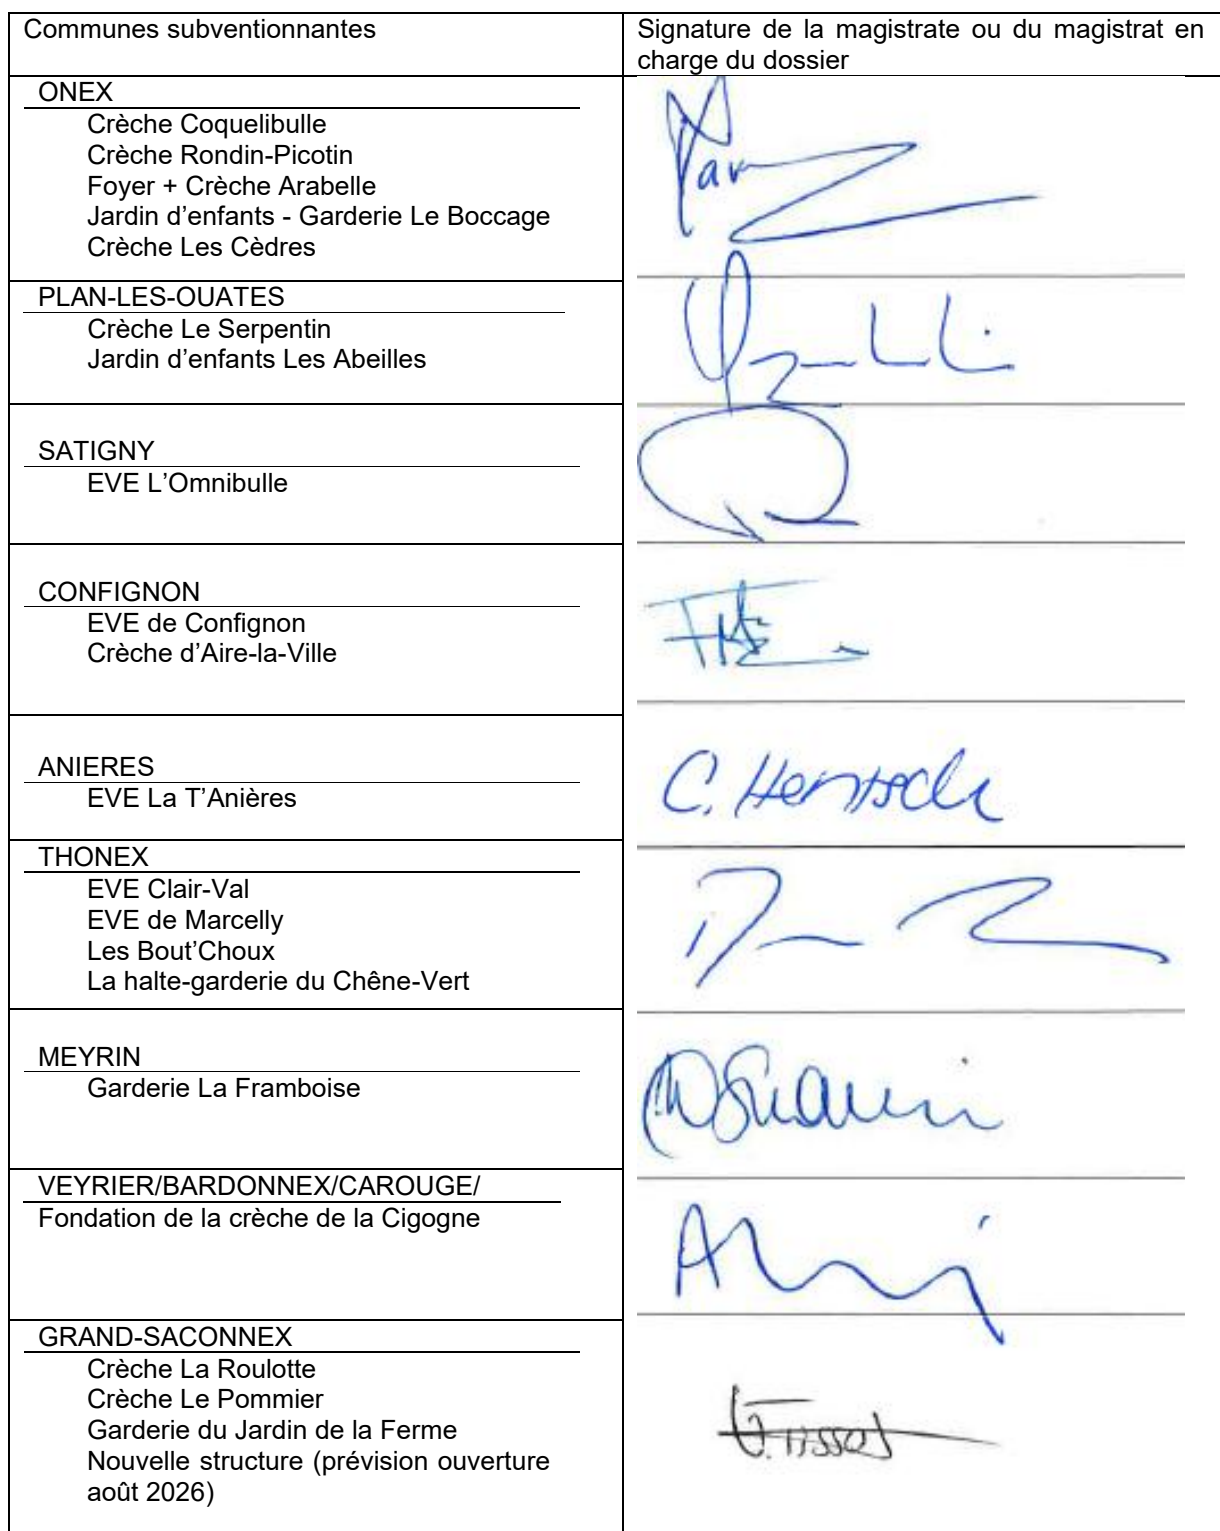 Communes subventionnantes
Signature de la magistrate ou du magistrat en
charge du dossier
ONEX
Crèche Coquelibulle
Crèche Rondin-Picotin
Foyer + Crèche Arabelle
Jardin d'enfants - Garderie Le Boccage
Crèche Les Cèdres
PLAN-LES-OUATES
Crèche Le Serpentin
Jardin d'enfants Les Abeilles
SATIGNY
EVE L'Omnibulle
CONFIGNON
EVE de Confignon
Crèche d'Aire-la-Ville
ANIERES
EVE La T'Anières
C. Hentsch
THONEX
EVE Clair-Val
EVE de Marcelly
Les Bout'Choux
La halte-garderie du Chêne-Vert
MEYRIN
Garderie La Framboise
VEYRIER/BARDONNEX/CAROUGE/
Fondation de la crèche de la Cigogne
GRAND-SACONNEX
Crèche La Roulotte
Crèche Le Pommier
Garderie du Jardin de la Ferme
Nouvelle structure (prévision ouverture
août 2026)